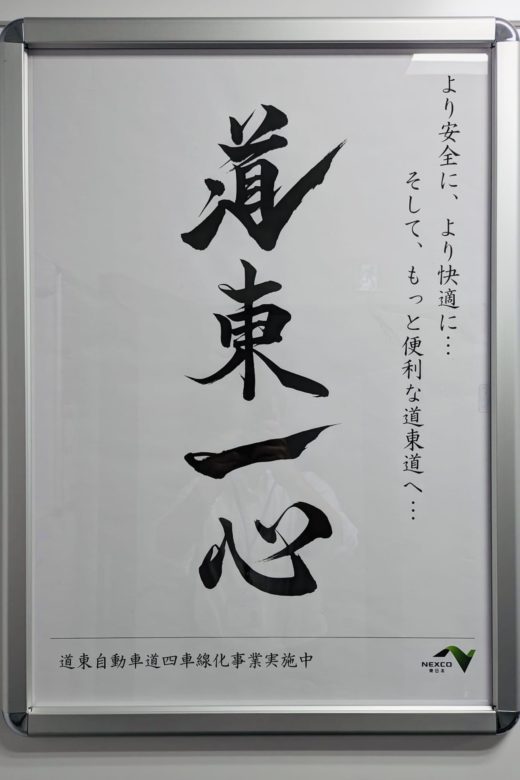 より安全に、より快適に…
そして、もっと便利な道東道へ…
道東一心
道東自動車道四車線化事業実施中
NEXCO
東日本